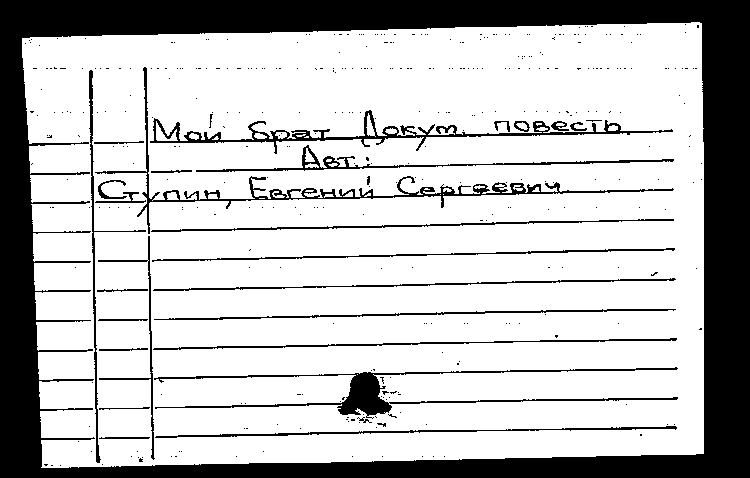 Мой брат Докум. повесть
Авт.:
Ступин, Евгений Сергеевич